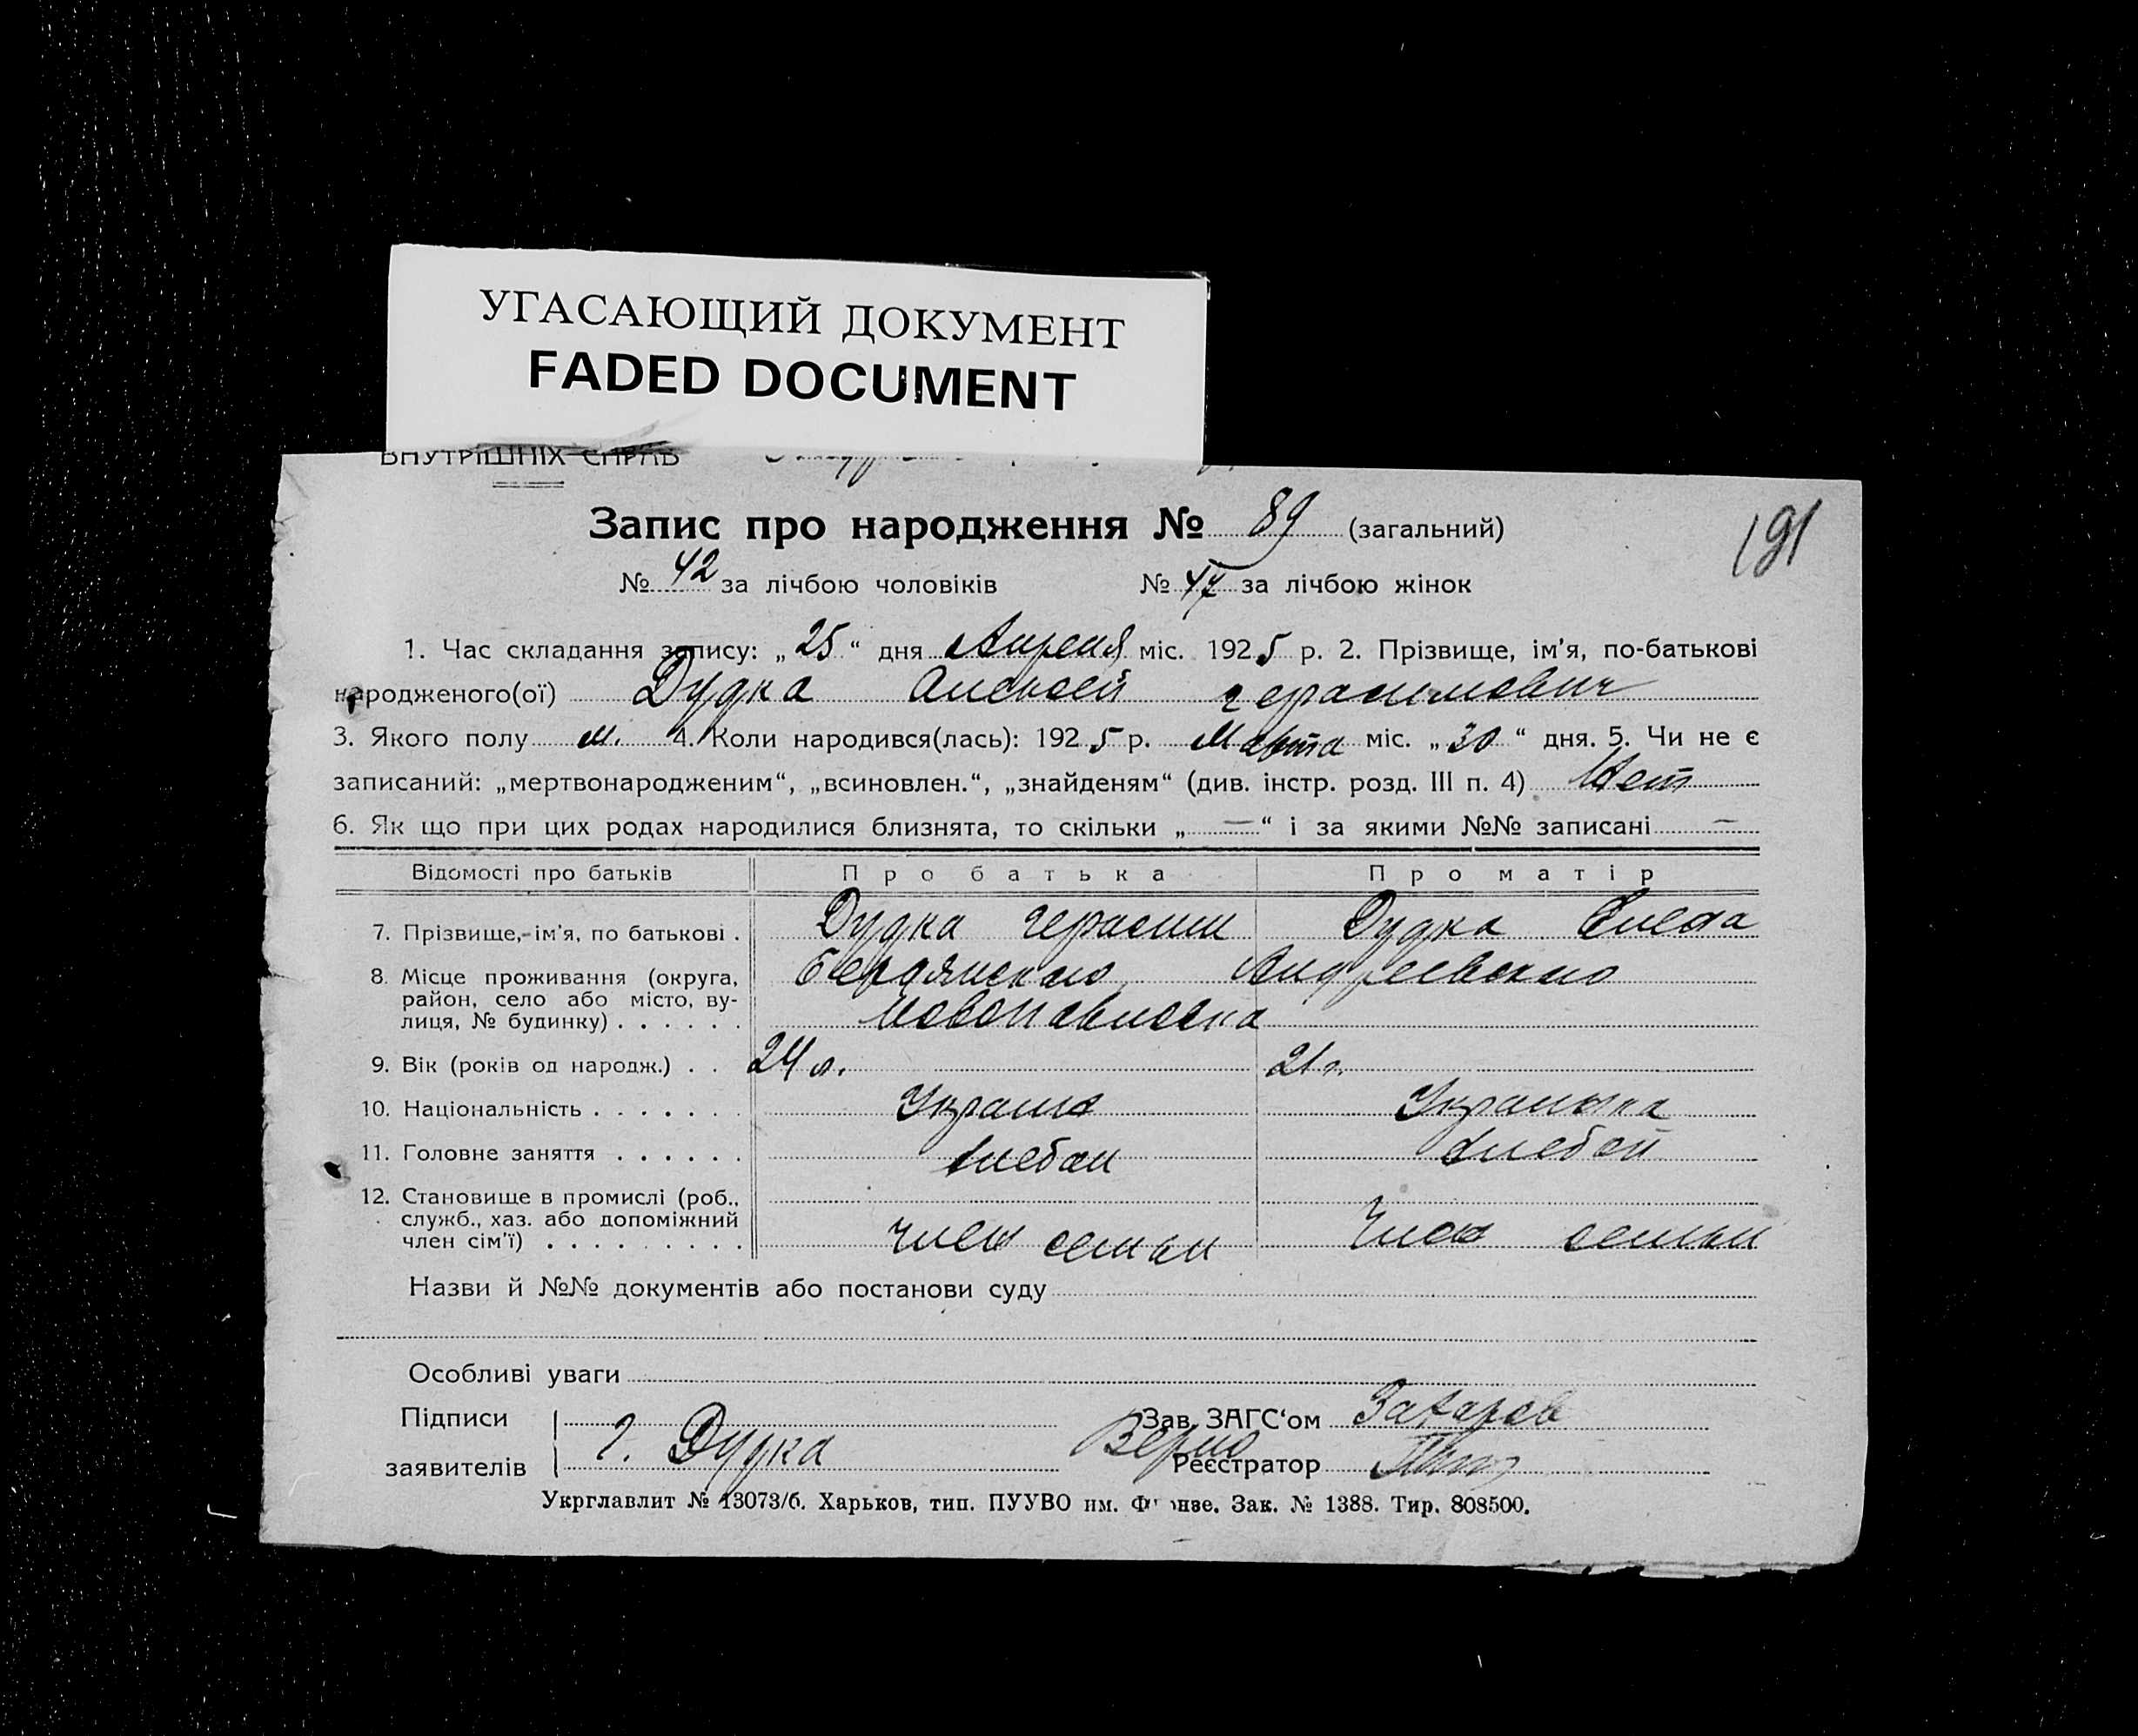 УГАСАЮЩИЙ ДОКУМЕНТ
FADED DOCUMENT
ВНУТРІШНІХ СПРАВ
Запис про народження № 89 (загальний)
191
№ 42 за лічбою чоловіків № 47 за лічбою жінок
1. Час складання запису: „25“ дня Апреля міс. 1925 р. 2. Прізвище, ім'я, по-батькові
народженого(ої) Дудка Алексей Герасимович
3. Якого полу м. 4. Коли народився(лась): 1925 р. Марта міс. „30“ дня. 5. Чи не є
записаний: „мертвонародженим“, „всиновлен.“, „знайденям“ (див. інстр. розд. III п. 4) Нет
6. Як що при цих родах народилися близнята, то скільки „—“ і за якими №№ записані —
Відомості про батьків Про батька Про матір
7. Прізвище, ім'я, по батькові . Дудка Герасим Дудка Елена
8. Місце проживання (округа, Бердянского, Андреевского
район, село або місто, ву-
лиця, № будинку) . . . . . . Новопавловка
9. Вік (років од народж.) . . 24 л. 21 г.
10. Національність . . . . . . . Украин Украинка
11. Головне заняття . . . . . . хлебоп хлебоп
12. Становище в промислі (роб.,
служб., хаз. або допоміжний
член сім'ї) . . . . . . . . . член семьи Член семьи
Назви й №№ документів або постанови суду
Особливі уваги
Підписи Зав. ЗАГС'ом Захаров
заявителів Г. Дудка Верно Реєстратор
Укрглавлит № 13073/б. Харьков, тип. ПУУВО им. Фрунзе. Зак. № 1388. Тир. 808500.